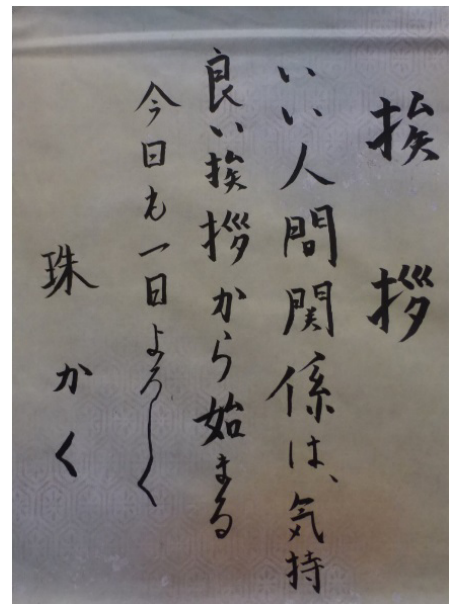 挨拶
いい人間関係は、気持
良い挨拶から始まる
今日も一日よろしく
珠かく